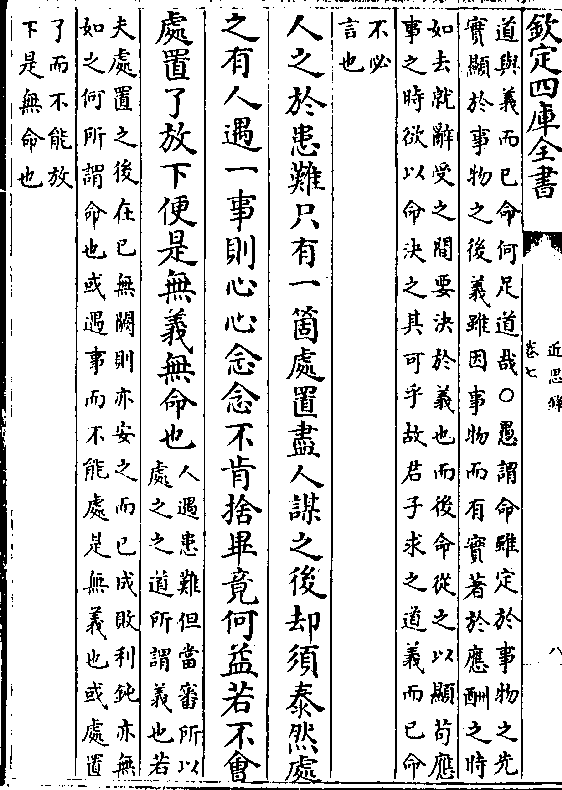 欽定四庫全書
近思錄
卷七
八
道與義而已命何足道哉○愚謂命雖定於事物之先
實顯於事物之後義雖因事物而有實著於應酬之時
如去就辭受之間要決於義也而後命從之以顯苟應
事之時欲以命決之其可乎故君子求之道義而已命
不必
言也
人之於患難只有一箇處置盡人謀之後却須泰然處
之有人遇一事則心心念念不肯捨畢竟何益若不會
處置了放下便是無義無命也
人遇患難但當審所以
處之之道所謂義也若
夫處置之後在已無闕則亦安之而已成敗利鈍亦無
如之何所謂命也或遇事而不能處是無義也或處置
了而不能放
下是無命也